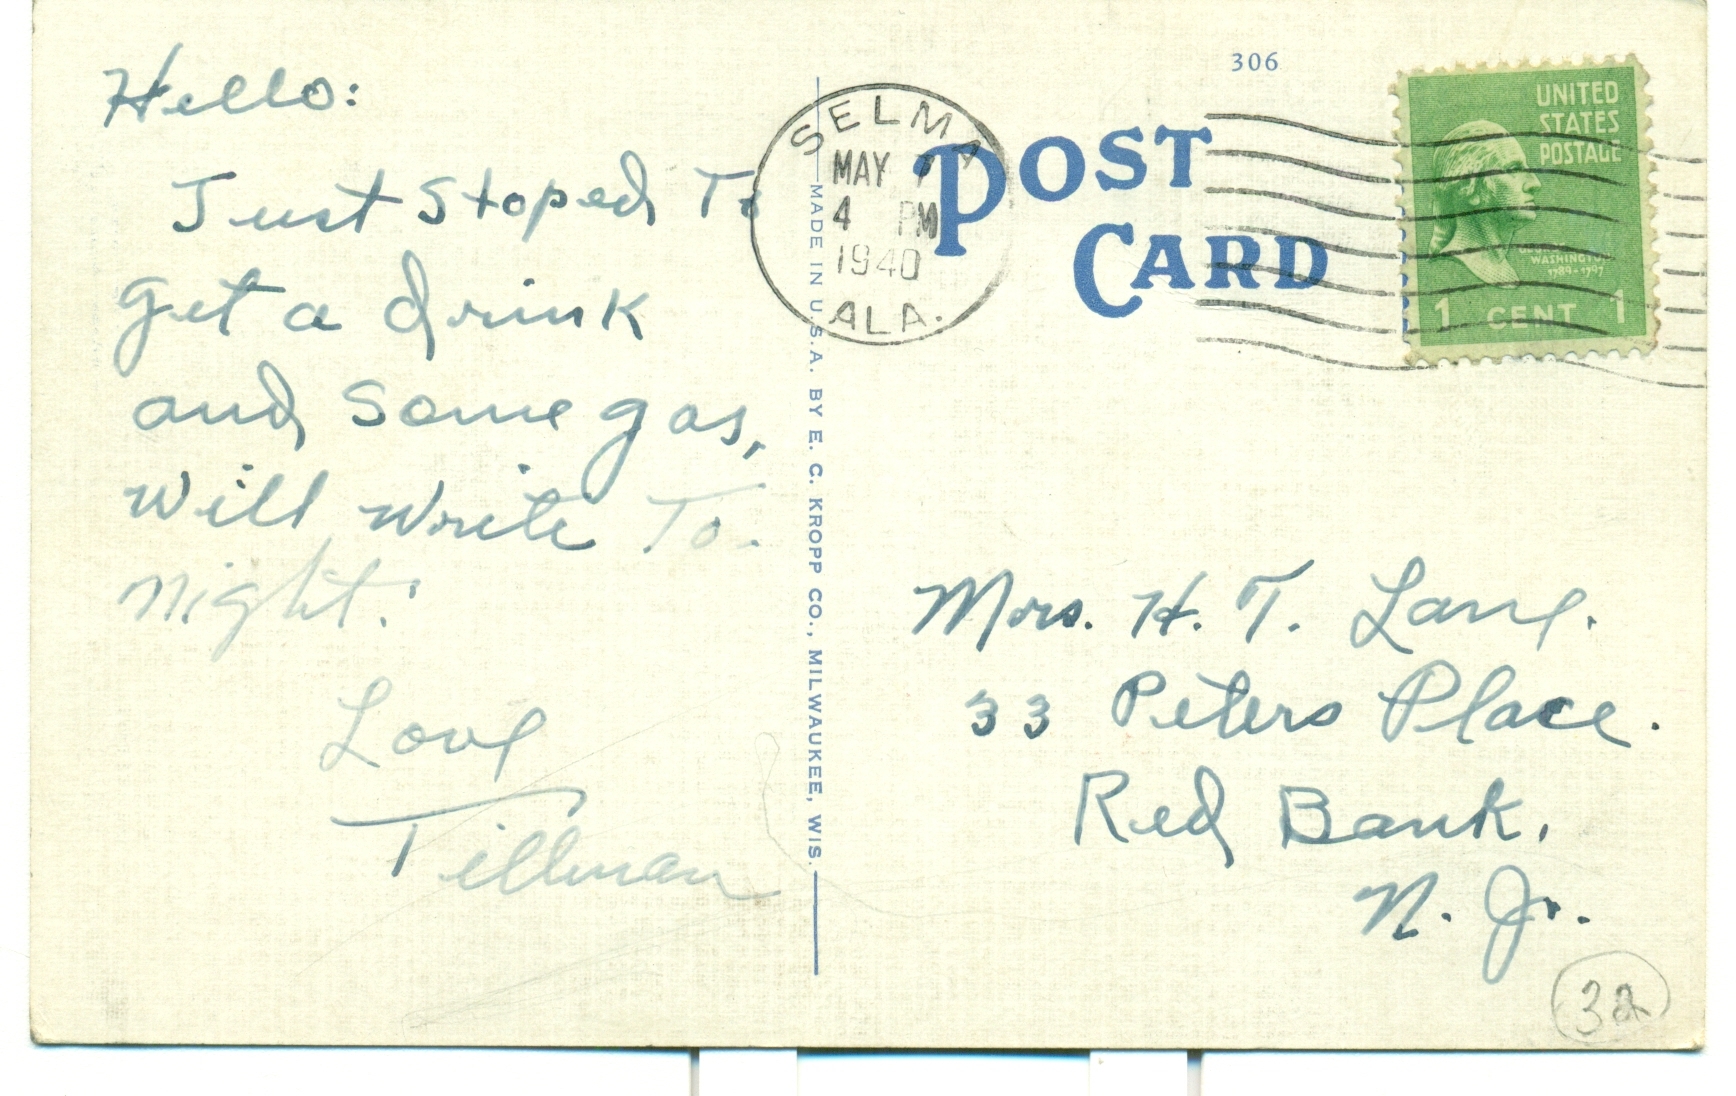 Hello:
Just stoped To
get a drink
and some gas,
will write To-
night!
Love
Tillman
MADE IN U.S.A. BY E. C. KROPP CO., MILWAUKEE, WIS.
306
POST
CARD
SELMA
MAY 7
4 PM
1940
ALA.
UNITED
STATES
POSTAGE
WASHINGTON
1789-1797
1 CENT 1
Mrs. H. T. Lane.
33 Peters Place.
Red Bank,
N. Jr.
32